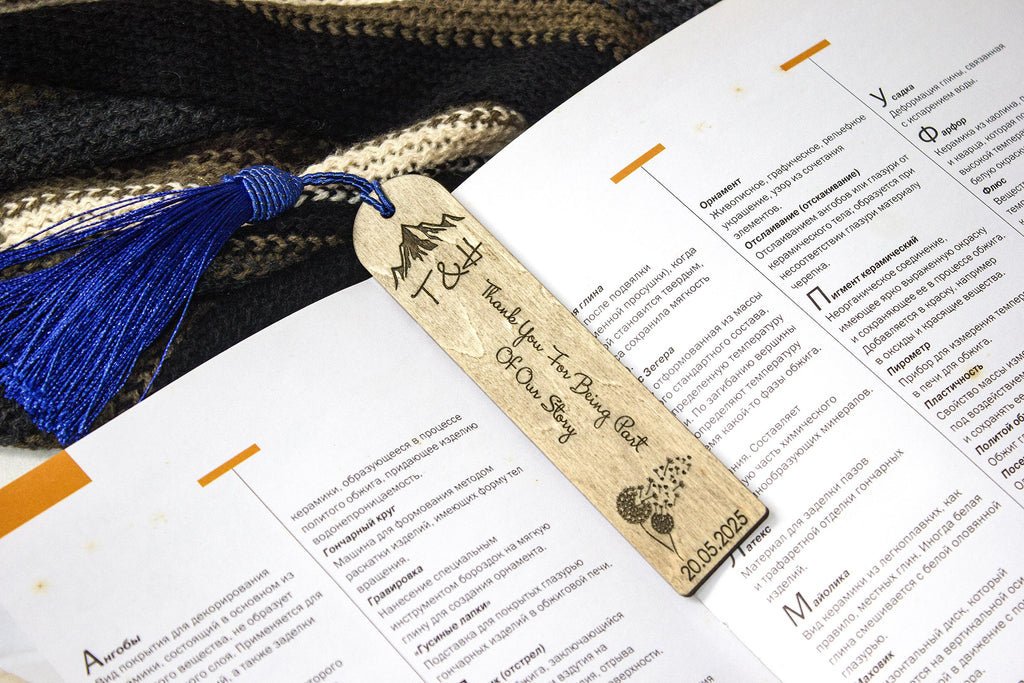 T & H
Thank You For Being Part
Of Our Story
20.05.2025
Ангобы
Вид покрытия для декорирования
состоящий в основном из
вещества, не образует
слоя. Применяется для
а также заделки
керамики, образующееся в процессе
политого обжига, придающее изделию
водонепроницаемость.
Гончарный круг
Машина для формования методом
раскатки изделий, имеющих форму тел
вращения.
Гравировка
Нанесение специальным
инструментом бороздок на мягкую
глину для создания орнамента.
«Гусиные лапки»
Подставка для покрытых глазурью
гончарных изделий в обжиговой печи.
(отстрел)
заключающейся
вздутия на
отрыва
глина
после подвялки
просушки), когда
становится твердым,
сохранила мягкость
Зегера
отформованная из массы
стандартного состава.
температуру
По загибанию вершины
определяют температуру
какой-то фазы обжига.
Составляет
часть химического
минералов.
Латекс
Материал для заделки пазов
и трафаретной отделки гончарных
изделий.
Майолика
Вид керамики из легкоплавких, как
правило, местных глин. Иногда белая
глина смешивается с белой оловянной
глазурью.
Маховик
диск, который
на вертикальной
в движение с
Орнамент
Живописное, графическое, рельефное
украшение, узор из сочетания
элементов.
Отслаивание (отскакивание)
Отслаиванием ангобов или глазури от
керамического тела; образуется при
несоответствии глазури материалу
черепка.
Пигмент керамический
Неорганическое соединение,
имеющее ярко выраженную окраску
и сохраняющее ее в процессе обжига.
Добавляется в краску, например
в оксиды и красящие вещества.
Пирометр
Прибор для измерения
в печи для обжига.
Пластичность
Свойство массы
под воздействием
и сохранять ее
Политой
Обжиг
Усадка
Деформация глины, связанная
с испарением воды.
Фарфор
Керамика из каолина,
и кварца, которая
высокой
белую
Флюс